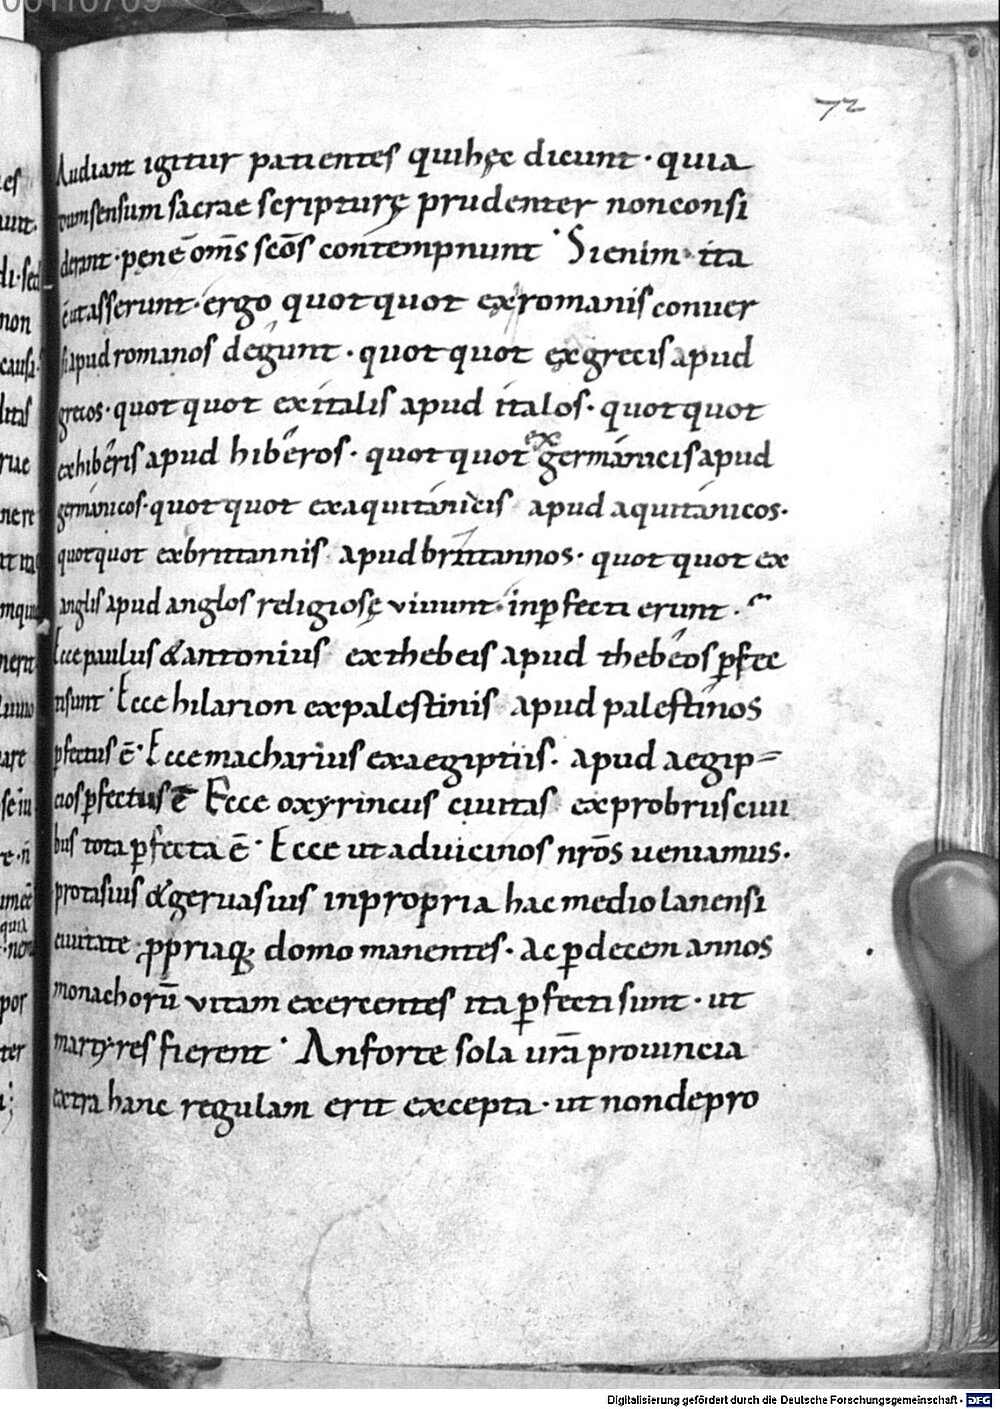 72
Audiant igitur patientes qui hęc dicunt · quia
dum sensum sacrae scripturę prudenter non consi
derant · pene om̄s sc̄os contempnunt · Si enim ita
ē ut asserunt · ergo quotquot ex romanis conver
si apud romanos degunt · quotquot ex grecis apud
grecos · quotquot ex italis apud italos · quotquot
ex hiberis apud hiberos · quotquot ex germanicis apud
germanicos · quotquot ex aquitanicis apud aquitanicos ·
quotquot ex brittannis apud brittannos · quotquot ex
anglis apud anglos religiosę vivunt · inp̱fecti erunt ·
Ecce paulus & antonius ex thebeis apud thebeos p̱fec
ti sunt · Ecce hilarion ex palestinis apud palestinos
p̱fectus ē · Ecce macharius ex aegiptiis · apud aegip=
cios p̱fectus ē Ecce oxyrincus civitas ex probrus civi
bus tota p̱fecta ē · Ecce ut ad vicinos nr̄os veniamus ·
protasius & gervasius in propria hac mediolanensi
civitate ꝓpriaq; domo manentes · Ac p̱ decem annos
monachorū vitam exercentes ita p̱fecti sunt · ut
martyres fierent · An forte sola vr̄a provincia
extra hanc regulam erit excepta · ut non de pro
Digitalisierung gefördert durch die Deutsche Forschungsgemeinschaft - DFG